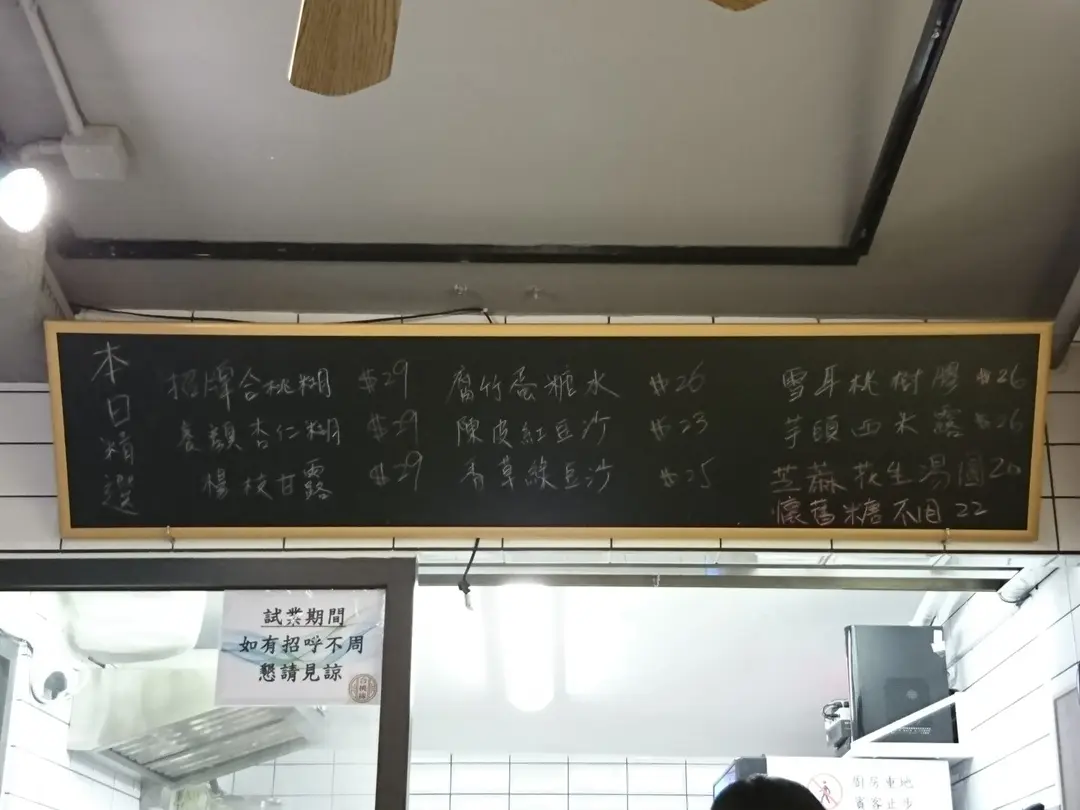 本日精選
招牌合桃糊 $29
養顏杏仁糊 $29
楊枝甘露 $29
腐竹蛋糖水 $26
陳皮紅豆沙 $23
香草綠豆沙 $25
雪耳桃樹膠 $26
芋頭西米露 $26
芝蔴花生湯圓 20
懷舊糖不甩 22
試業期間
如有招呼不周
懇請見諒
廚房重地
賓客止步